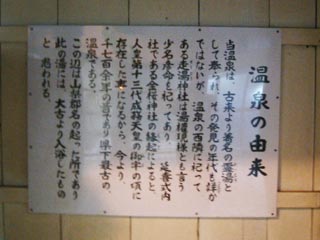 温泉の由来
当温泉は、古来より著名の霊湯と
して称られ、その発見の年代も詳か
ではないが、温泉の西隣に祀って
ある走湯神社は湯権現様とも言う
少名彦命を祀ってあり 延喜式内
社である金桜神社の縁起によると、
人皇第十三代成務天皇の御宇の頃に
存在した事になるから、今より
千七百余年の昔であり県下最古の、
温泉である。
この辺は山梨郡名の起った所であり
此の湯には、太古より入浴したもの
と思われる、